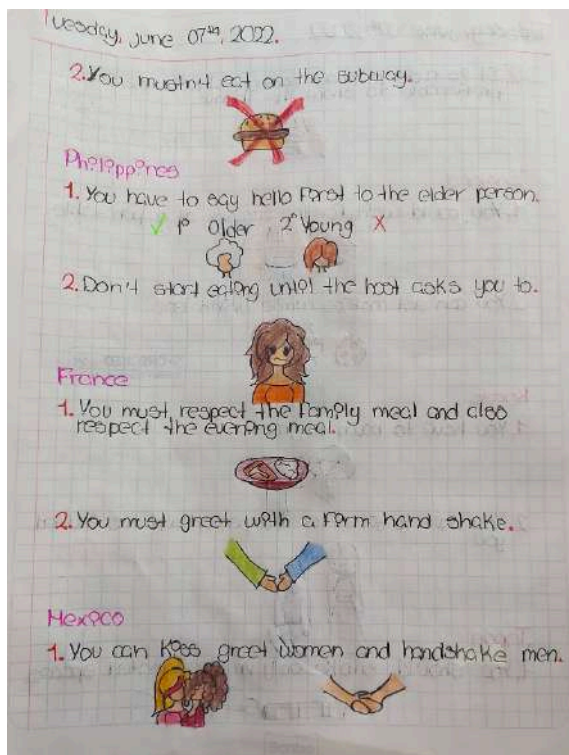 Tuesday, June 07th, 2022.
2. You mustn't eat on the subway.
Philippines
1. You have to say hello first to the elder person.
✓ 1° Older , 2° Young X
2. Don't start eating until the host asks you to.
France
1. You must, respect the family meal and also
respect the evening meal.
2. You must greet with a firm hand shake.
Mexico
1. You can kiss greet women and handshake men.